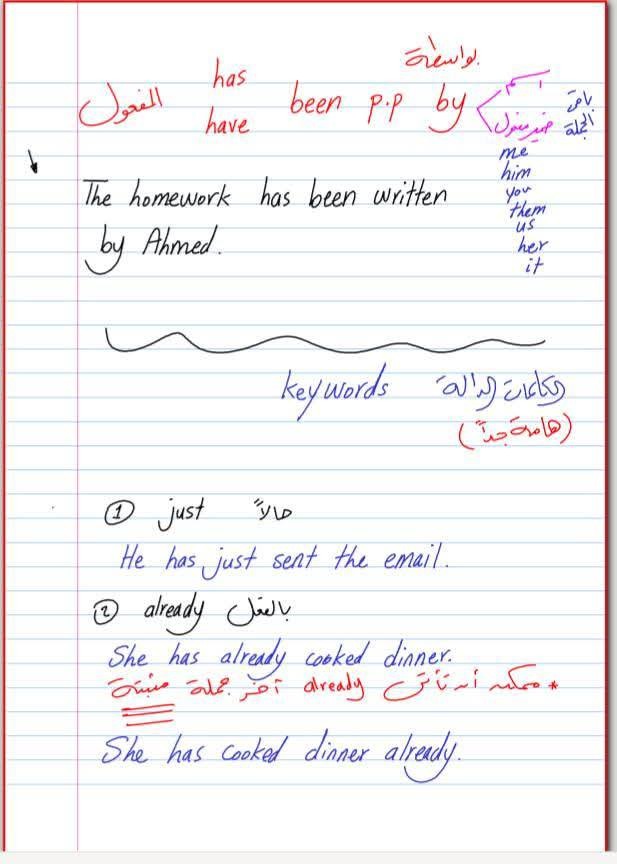 بواسطة
المفعول has have been p.p by اسم ضمير مفعول باقي الجملة
me
him
you
them
us
her
it
The homework has been written
by Ahmed.
keywords الكلمات الدالة
(هامة جداً)
① just حالاً
He has just sent the email.
② already بالفعل
She has already cooked dinner.
* ممكن أن تأتي already آخر جملة مثبتة
She has cooked dinner already.